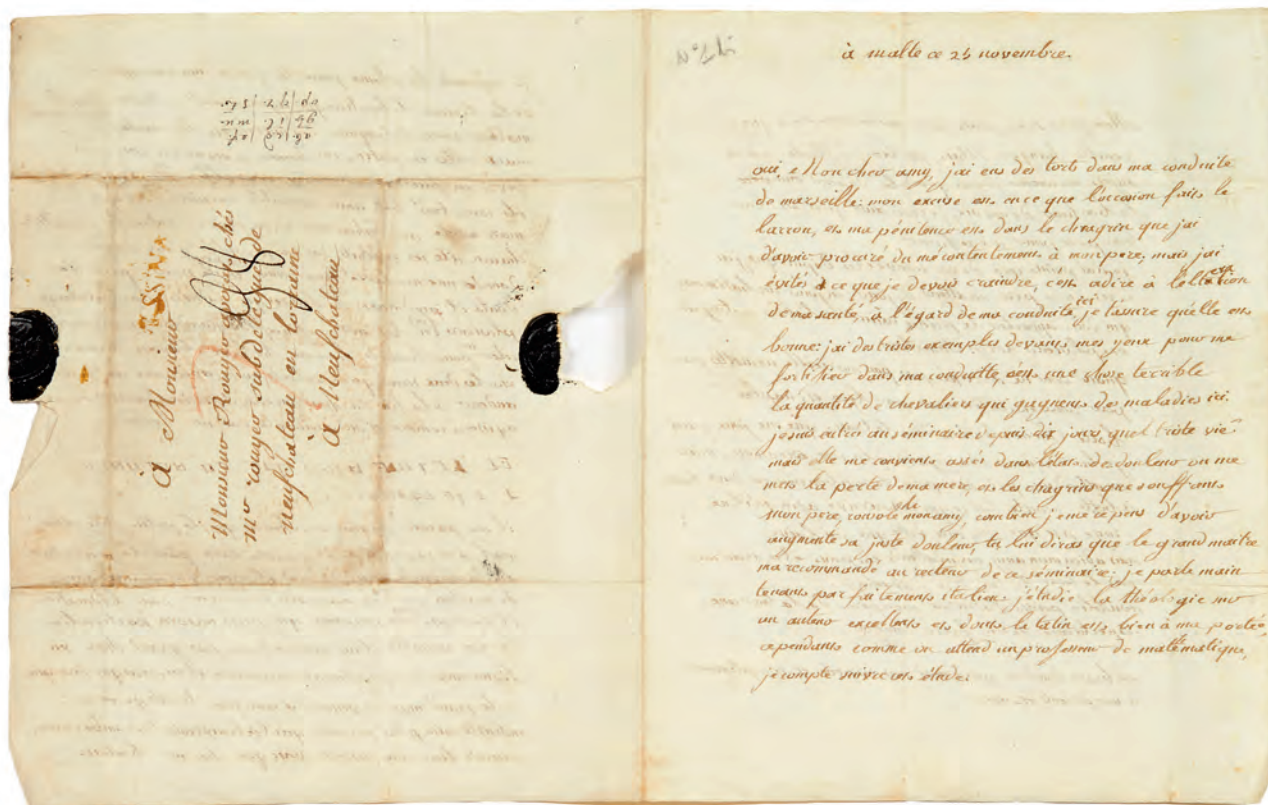 à Monsieur
Monsieur Rouyer chés
mr rouyer subdelegué de
neufchateau en lorraine
à Neufchateau
ab|cd|ef
gh|il|mn
op|qr|st
à malte ce 25 novembre.
oui, Mon cher amy, jai eus des torts dans ma conduite
de marseille: mon excuse est en ce que l'occasion fait le
larron, et ma pénitence est dans le chagrin que jai
d'avoir procuré du mécontentement à mon pere, mais jai
évités ce que je devois craindre, cest adire à
de ma santé, à l'égard de ma conduite ici, je t'assure qu'elle est
bonne: jai des tristes exemples devant mes yeux pour me
fortifier dans ma conduitte, cest une chose terrible
la quantité de chevaliers qui gagnent des maladies ici.
je suis entrés au séminaire depuis dix jours, quel triste vie
mais elle me convient assés dans l'état de douleur ou me
met la perte de ma mere, et les chagrins que souffrent
mon pere, console le mon amy, combien je me répens d'avoir
augmenté sa juste douleur, tu lui diras que le grand maitre
ma recommandé au recteur de ce séminaire: je parle main
tenant parfaitement italien, j'étudie la théologie sur
un auteur excellent et dont le latin est bien à ma portée,
cependant comme on attend un professeur de mathématique,
je compte suivre cet étude.